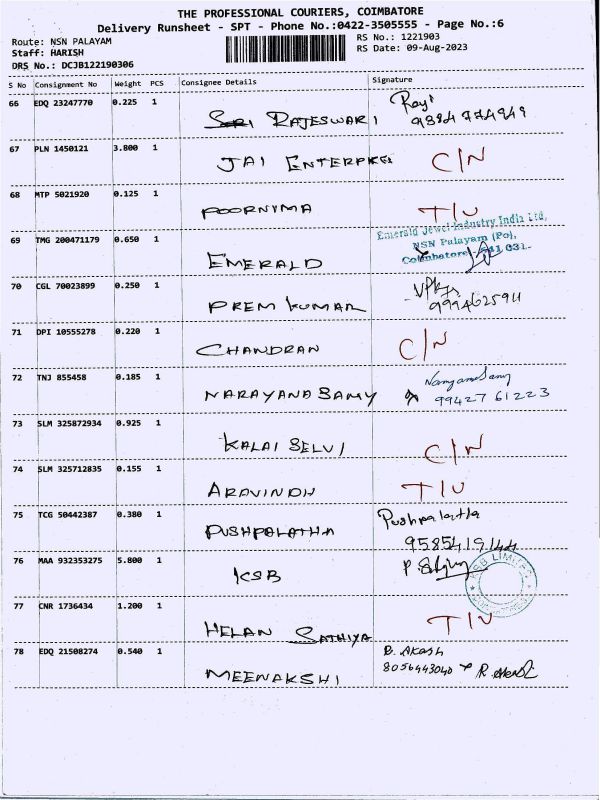 THE PROFESSIONAL COURIERS, COIMBATORE
Delivery Runsheet - SPT - Phone No.:0422-3505555 - Page No.:6
Route: NSN PALAYAM RS No.: 1221903
Staff: HARISH RS Date: 09-Aug-2023
DRS No.: DCJB122190306
S No Consignment No Weight PCS Consignee Details Signature
66 EDQ 23247770 0.225 1
SRI RAJESWARI
67 PLN 1450121 3.800 1
JAI ENTERPRES C/N
68 MTP 5021920 0.125 1
POORNIMA T/U
Emerald Jewel Industry India Ltd,
69 TMG 200471179 0.650 1 NSN Palayam (Po),
EMERALD Coimbatore - 641 031.
70 CGL 70023899 0.250 1
PREM KUMAR 9994625911
71 DPI 10555278 0.220 1
CHANDRAN C/N
72 TNJ 855458 0.185 1
NARAYANA SAMY 99427 61223
73 SLM 325872934 0.925 1
KALAI SELVI C/N
74 SLM 325712835 0.155 1
ARAVINDH T/U
75 TCG 50442387 0.380 1 Pushpalatha
PUSHPALATHA 9585419144
76 MAA 932353275 5.800 1
KSB KSB LIMITED
77 CNR 1736434 1.200 1
HELAN SATHIYA T/U
78 EDQ 21508274 0.540 1 D. Akash
MEENAKSHI 8056443040